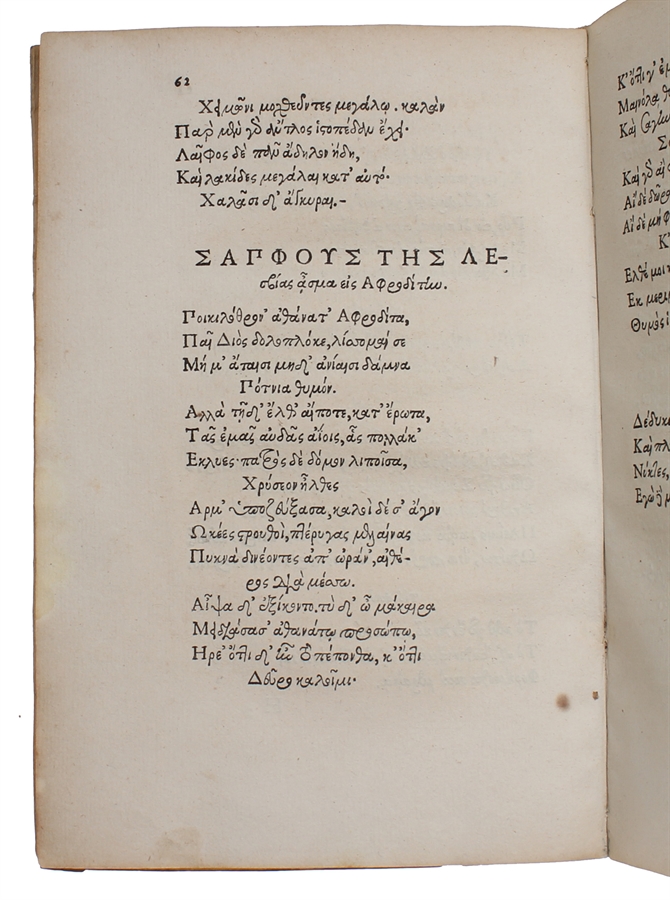 62
Χειμῶνι μοχθεῦντες μεγάλῳ. καλὰν
Παρ μὲν γὸ ἄντλος ἱστοπέδαν ἔχει·
Λαῖφος δὲ πᾶν ἄδηλον ἤδη,
Καὶ λακίδες μεγάλαι κατ' αὐτό·
Χαλᾶσι δ' ἄγκυραι.-
ΣΑΠΦΟΥΣ ΤΗΣ ΛΕ-
σβίας ᾆσμα εἰς Αφροδίτην.
Ποικιλόθρον' ἀθάνατ' Αφροδίτα,
Παῖ Διὸς δολοπλόκε, λίσσομαί σε
Μή μ' ἄταισι μηδ' ἀνίαισι δάμνα
Πότνια θυμόν.
Αλλὰ τῇδ' ἔλθ' αἴποτε, κατ' ἔρωτα,
Τᾶς ἐμᾶς αὐδᾶς ἀΐοις, ἇς πολλάκ'
Εκλυες· πατρὸς δὲ δόμον λιποῖσα,
Χρύσεον ἦλθες
Αρμ' ὑποζεύξασα, καλοὶ δέ σ' ἆγον
Ωκέες στρουθοὶ, πτέρυγας μελαίνας
Πυκνὰ δινέοντες ἀπ' ὠράν', αἰθέ-
ρος διὰ μέσσω.
Αἶψα δ' ἐξίκοντο. τὺ δ' ὦ μάκαιρα
Μειδιάσασ' ἀθανάτῳ προσώπῳ,
Ηρε' ὅττι δ' ἦν πέπονθα, κ' ὅττι
Δεῦρο καλοῖμι·
Κ' ὅττι γ' ἐμ
Μαινόλᾳ θ
Καὶ
Καὶ γὸ αἰ
Αἰ δὲ δῶρα
Αἰ δὲ μὴ φ
Κ'
Ελθέ μοι
Εκ μερι
Θυμὸς ἱ
Δέδυκε
Καὶ πλ
Νύκτες,
Εγὼ